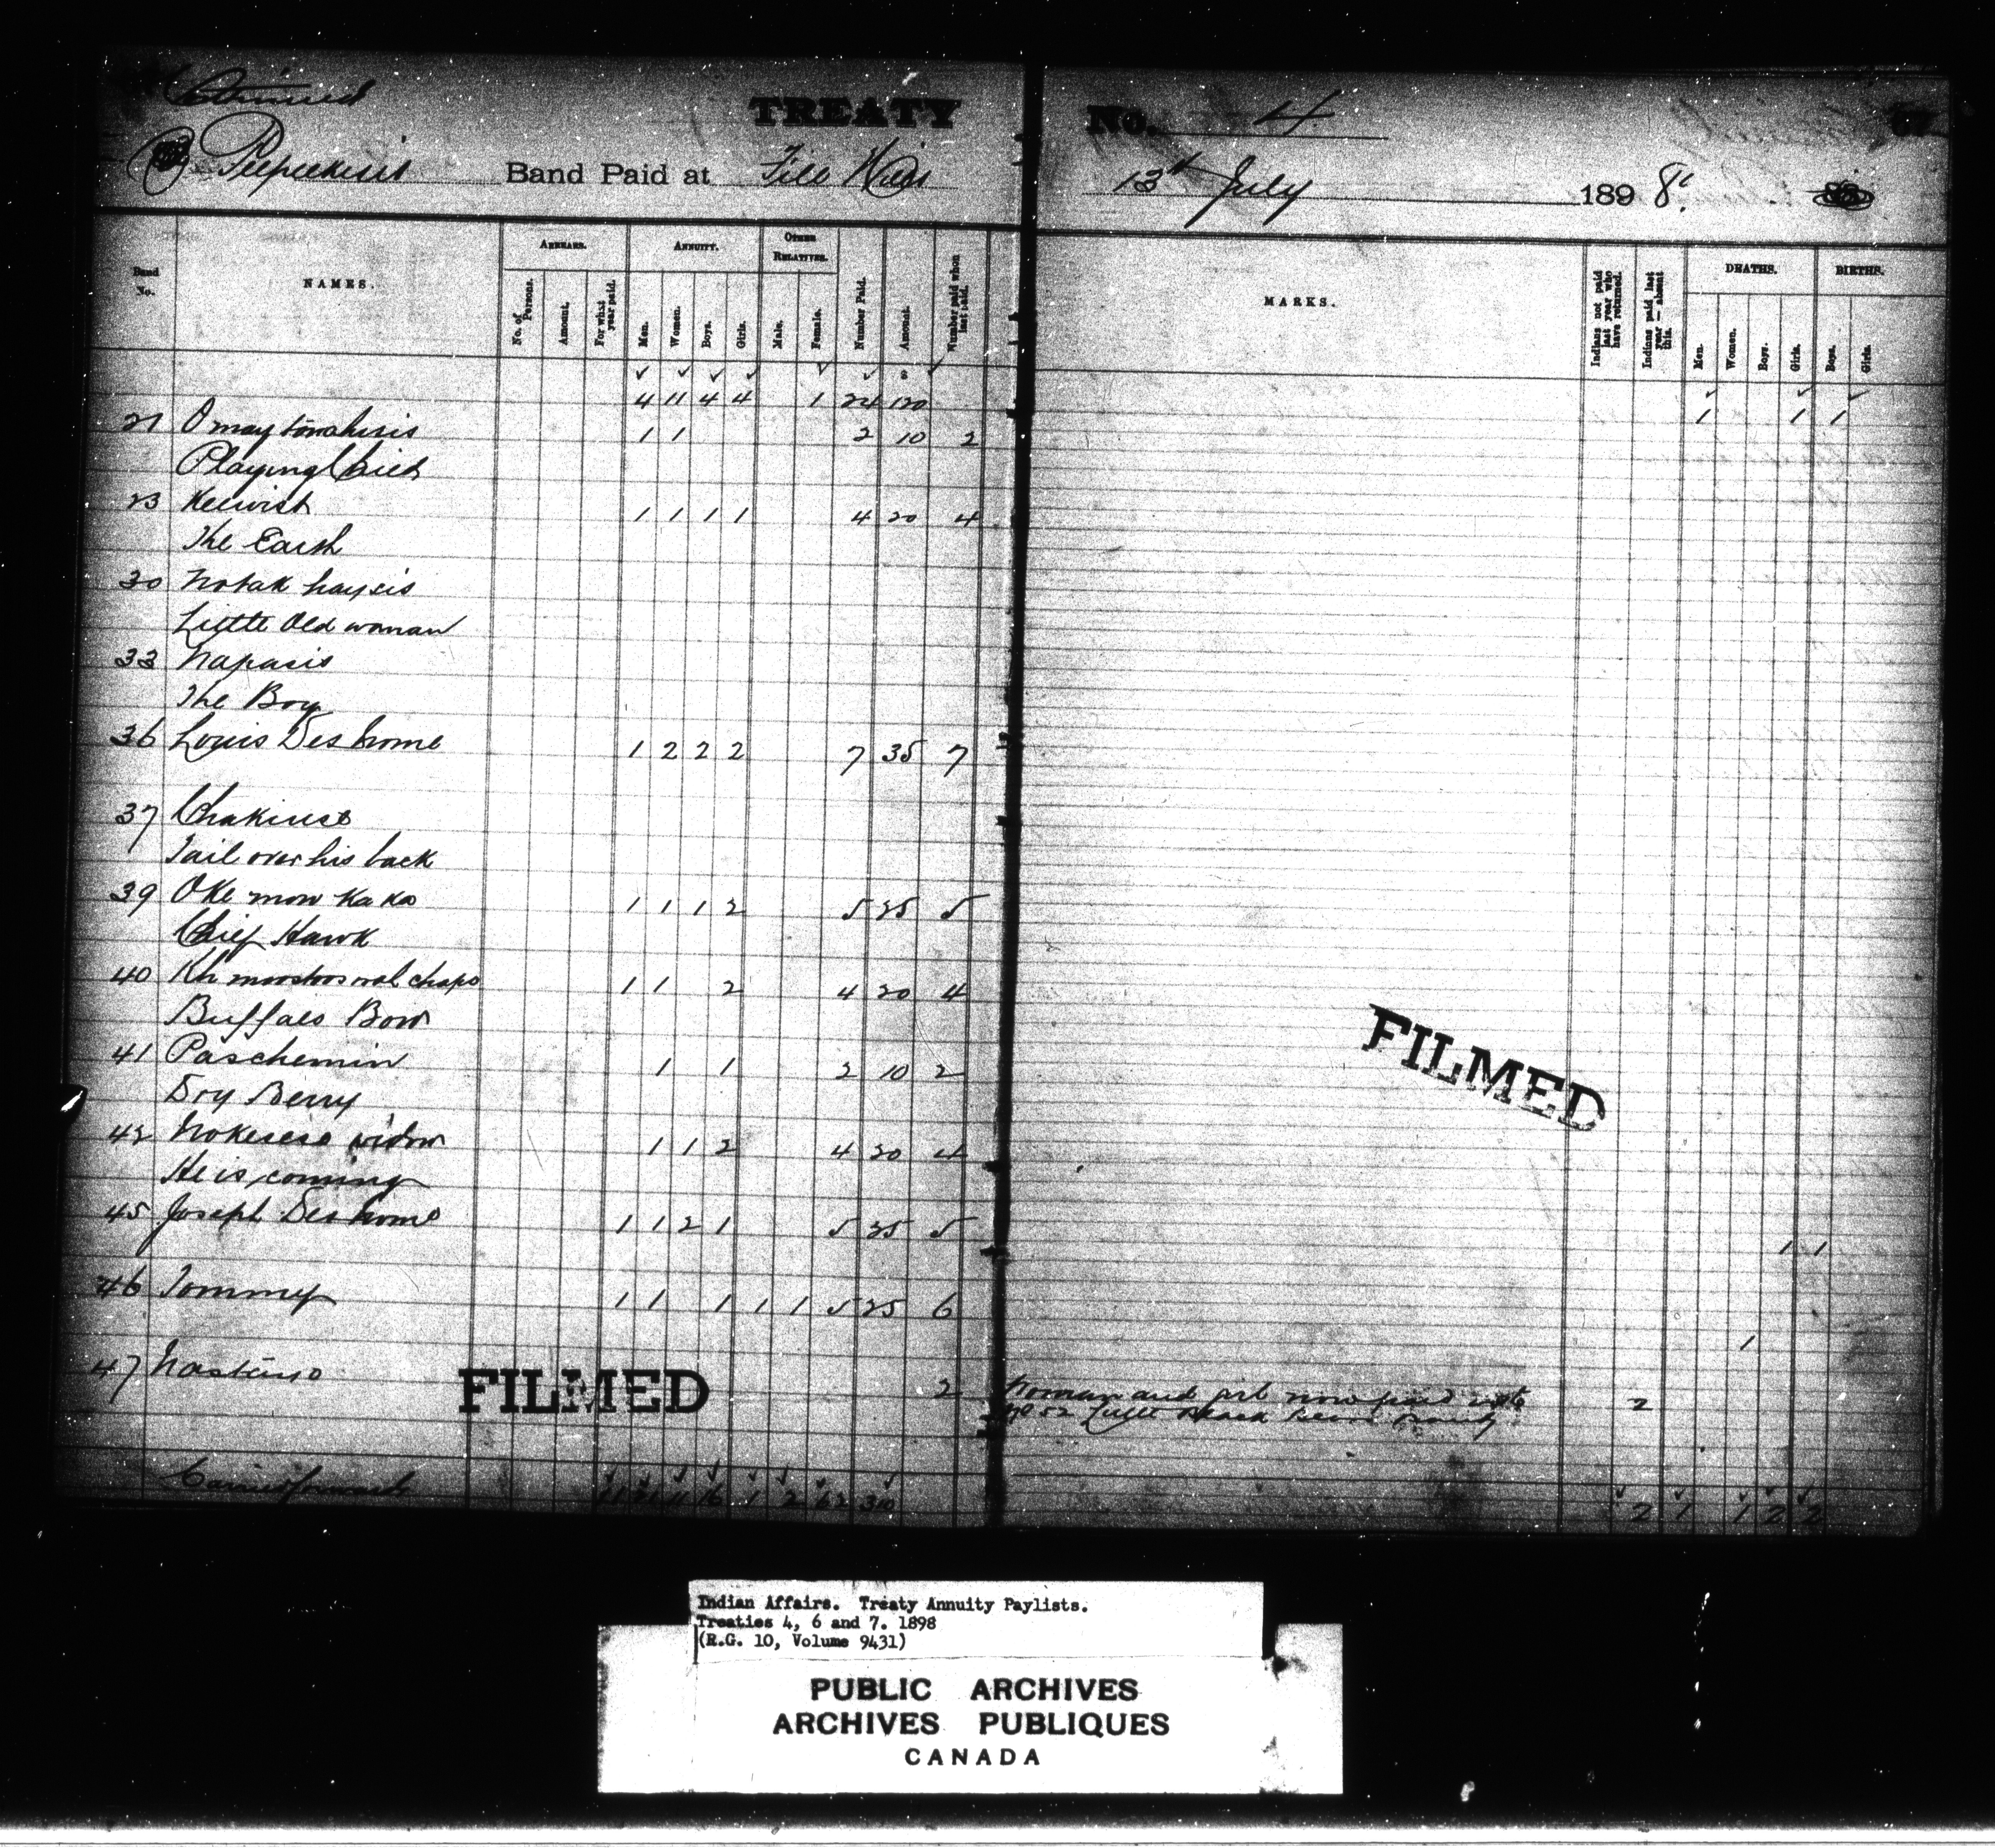 Continued TREATY No. 4 67
Peepeekesis Band Paid at File Hills 13th July 1898.
Band No. NAMES. ARREARS. ANNUITY. OTHER RELATIVES. Number Paid. Amount. Number paid when last paid. MARKS. Indians not paid last year who have returned. Indians paid last year — absent this. DEATHS. BIRTHS.
No. of Persons. Amount. For what year paid. Men. Women. Boys. Girls. Male. Female. Men. Women. Boys. Girls. Boys. Girls.
4 11 4 4 1 24 120 1 1 1
21 1 1 2 10 2
Playing Child
23 Keewist 1 1 1 1 4 20 4
The Earth
30
Little Old woman
33 Napasis
The Boy
36 Louis Deshome 1 2 2 2 7 35 7
37
Tail over his back
39 Oke mow 1 1 1 2 5 25 5
Chief Hawk
40 1 1 2 4 20 4
Buffalo Bow
41 Paschemin 1 1 2 10 2
Dry Berry
42 widow 1 1 2 4 20 4
He is coming
45 Joseph Deshome 1 1 2 1 5 25 5 1 1
46 Tommy 1 1 1 1 1 5 25 6
1
47 2 Woman and girl now paid 2
No 52 Little Black Band
Carried forward 11 21 11 16 1 2 62 310 2 1 1 2 2
FILMED
FILMED
Indian Affairs. Treaty Annuity Paylists.
Treaties 4, 6 and 7. 1898
(R.G. 10, Volume 9431)
PUBLIC ARCHIVES
ARCHIVES PUBLIQUES
CANADA